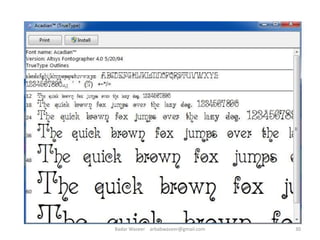 Acadian™ (TrueType)
Print Install
Font name: Acadian™
Version: Altsys Fontographer 4.0 5/20/94
TrueType Outlines
abcdefghijklmnopqrstuvwxyz ABCDEFGHIJKLMNOPQRSTUVWXYZ
1234567890
12 The quick brown fox jumps over the lazy dog. 1234567890
18 The quick brown fox jumps over the lazy dog. 1234567890
24 The quick brown fox jumps over the lazy dog. 1234567890
36 The quick brown fox jumps over the la
48 The quick brown fox jumps
60 The quick brown fox
The quick brown
Badar Waseer arbabwaseer@gmail.com